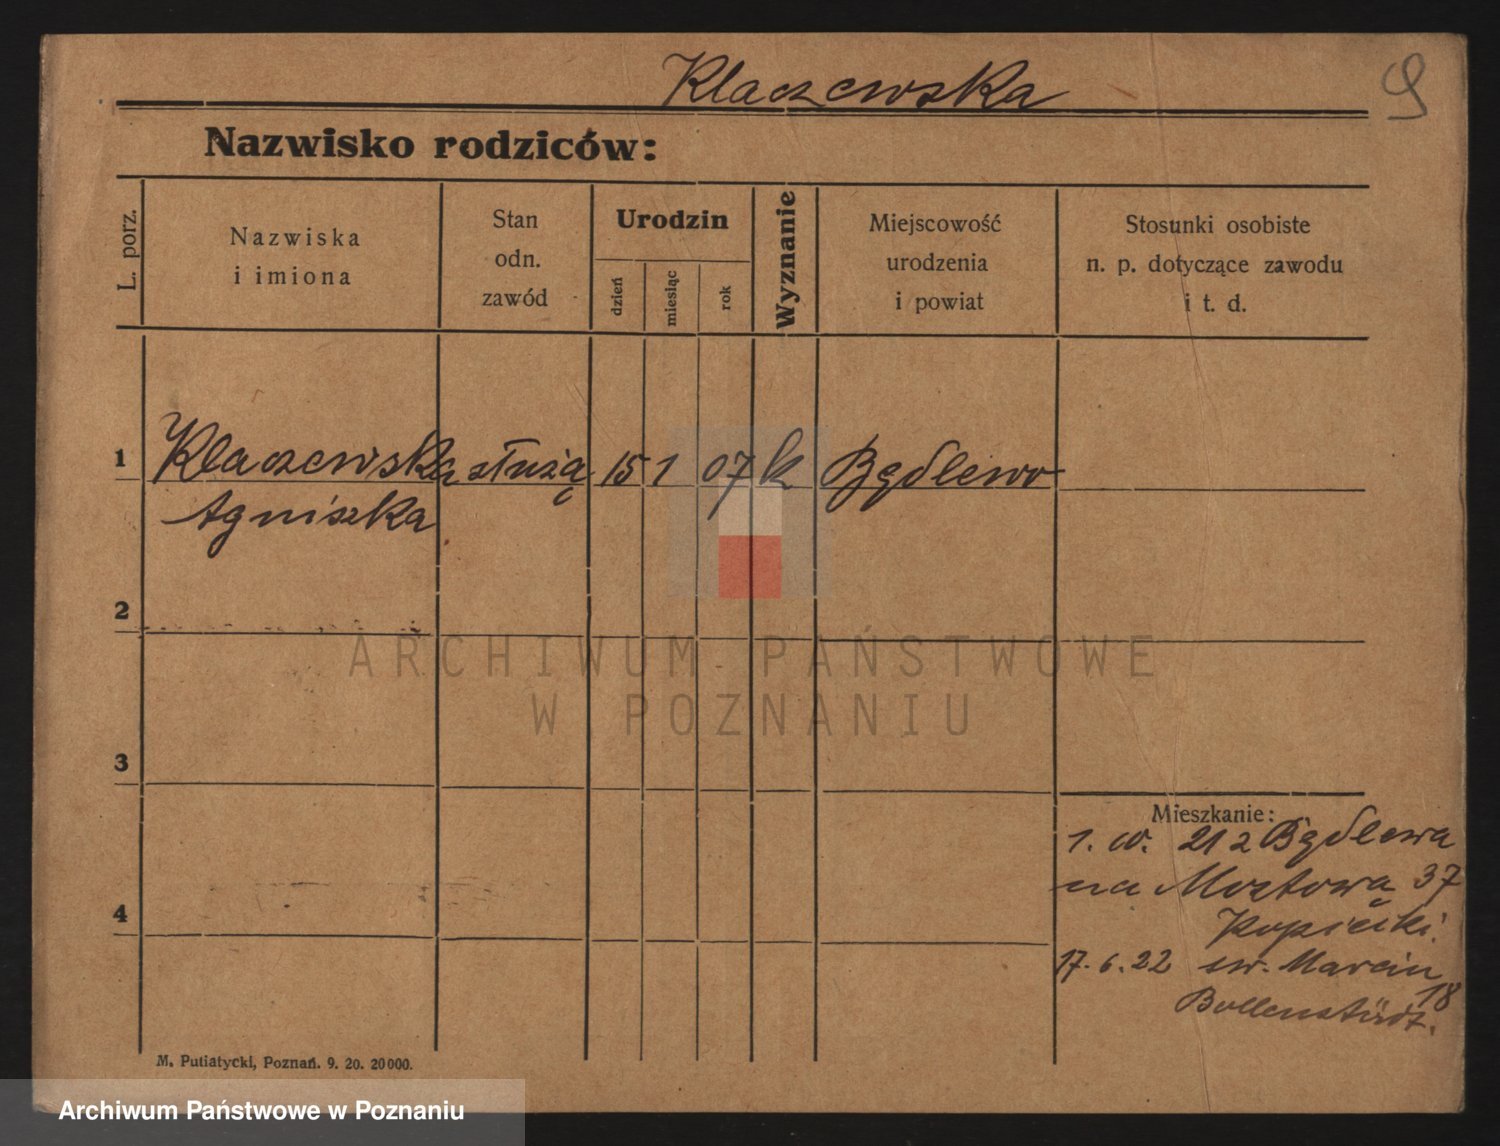 Klaczewska
9
Nazwisko rodziców:
L. porz.
Nazwiska
i imiona
Stan
odn.
zawód
Urodzin
dzień
miesiąc
rok
Wyznanie
Miejscowość
urodzenia
i powiat
Stosunki osobiste
n. p. dotyczące zawodu
i t. d.
1
Klaczewska służą 15 1 07 k Będlewo
Agniszka
2
3
4
Mieszkanie:
21 z Będlewa
na Mostową 37
17. 6. 22 św. Marcin
18
M. Putiatycki, Poznań. 9. 20. 20000.
ARCHIWUM PAŃSTWOWE
W POZNANIU
Archiwum Państwowe w Poznaniu